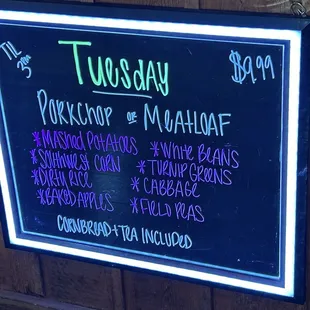 TIL
3pm
Tuesday
$9.99
Porkchop or Meatloaf
*Mashed Potatoes
*Southwest Corn
*Dirty Rice
*Baked Apples
*White Beans
*Turnip Greens
*Cabbage
*Field Peas
Cornbread + Tea Included